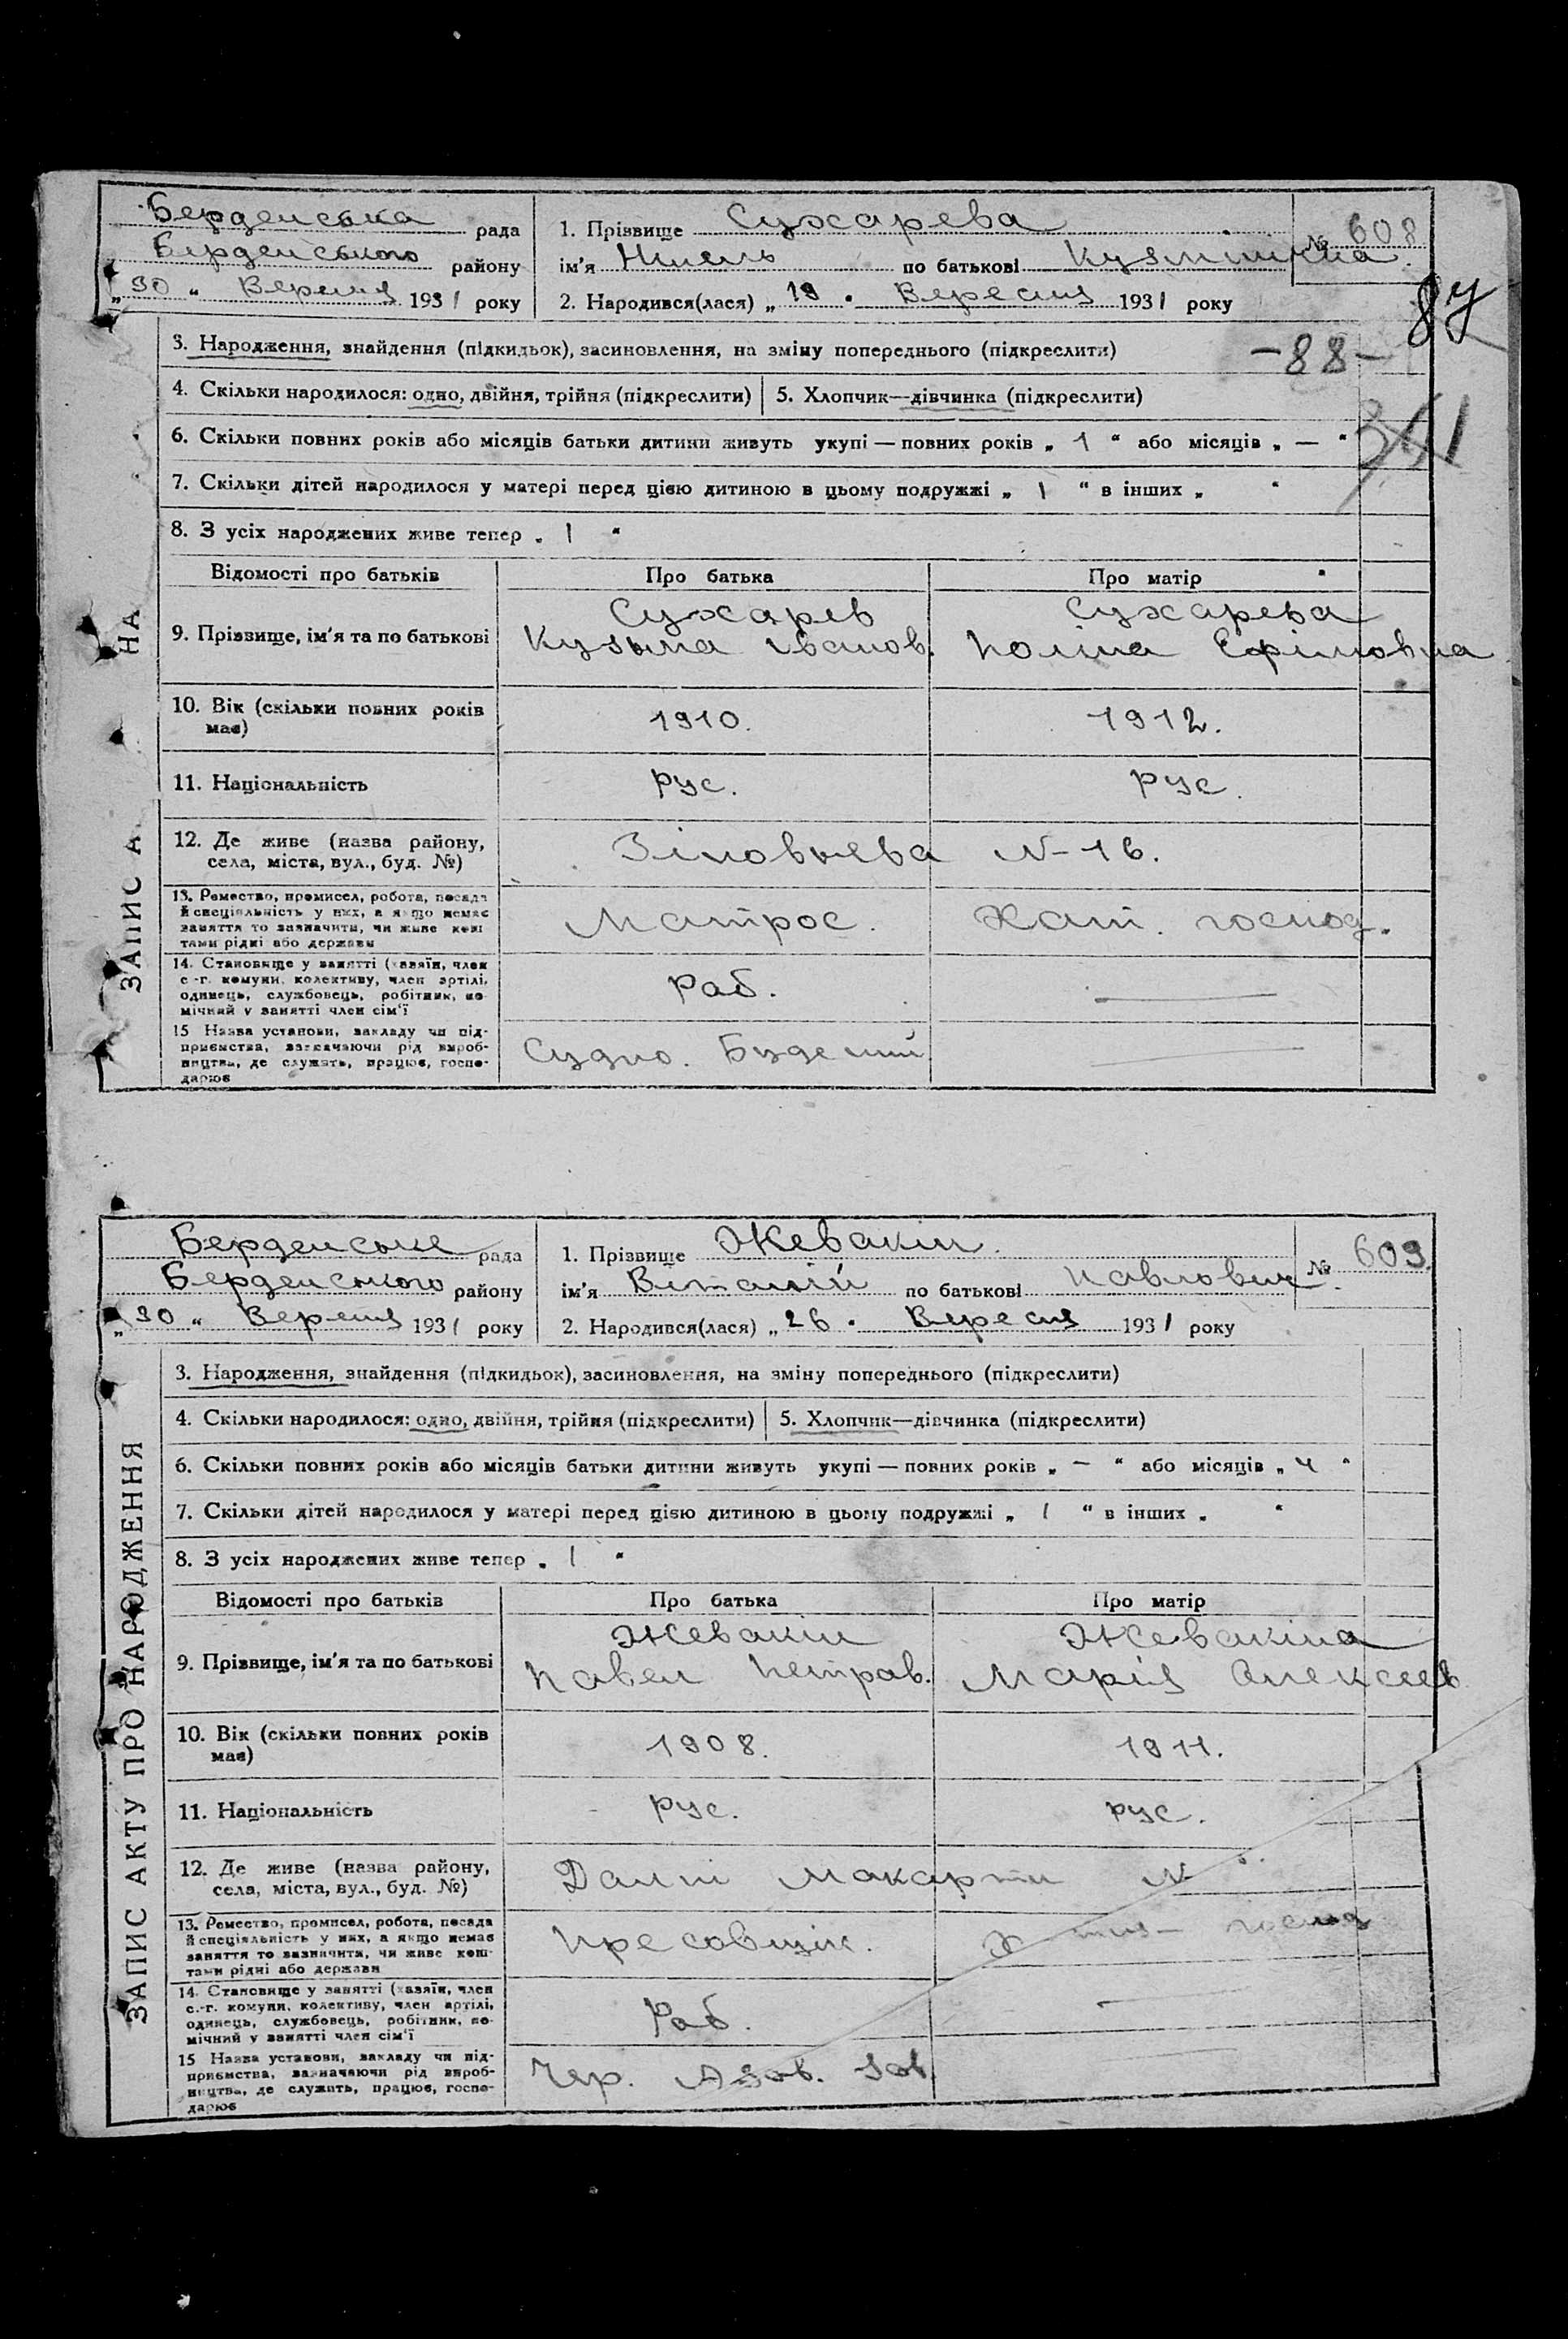 Берденська рада
Берденського району
„30“ Вересня 1931 року
1. Прізвище Сухарева
ім'я Нинель по батькові Кузминична
№ 608
2. Народився(лася) „19“ Вересня 1931 року
87
3. Народження, знайдення (підкидьок), засиновлення, на зміну попереднього (підкреслити)
-88-
4. Скільки народилося: одно, двійня, трійня (підкреслити)
5. Хлопчик—дівчинка (підкреслити)
6. Скільки повних років або місяців батьки дитини живуть укупі — повних років „ 1 “ або місяців „ — “
7. Скільки дітей народилося у матері перед цією дитиною в цьому подружжі „ 1 “ в інших „ “
8. З усіх народжених живе тепер „ 1 “
Відомості про батьків
Про батька
Про матір
9. Прізвище, ім'я та по батькові
Сухарев
Кузьма Іванов.
Сухарева
Поліна Єфімовна
10. Вік (скільки повних років має)
1910.
1912.
11. Національність
рус.
рус.
12. Де живе (назва району, села, міста, вул., буд. №)
Зіновьева N-16.
13. Ремество, промисел, робота, посада
й спеціяльність у них, а якщо немає
заняття то зазначити, чи живе кош
тами рідні або держави
Матрос.
Хат. господ.
14. Становище у занятті (хазяїн, член
с.-г. комуни, колективу, член артілі,
одинець, службовець, робітник, по-
мічний у занятті член сім'ї
Раб.
15 Назва установи, закладу чи під-
приємства, зазначаючи рід вироб-
ництва, де служить, працює, госпо-
дарює
Судно.
ЗАПИС А НА
Берденське рада
Берденського району
„30“ Вересня 1931 року
1. Прізвище Жевакін.
ім'я Віталій по батькові Павлович.
№ 609.
2. Народився(лася) „26“ Вересня 1931 року
3. Народження, знайдення (підкидьок), засиновлення, на зміну попереднього (підкреслити)
4. Скільки народилося: одно, двійня, трійня (підкреслити)
5. Хлопчик—дівчинка (підкреслити)
6. Скільки повних років або місяців батьки дитини живуть укупі — повних років „ — “ або місяців „ 4 “
7. Скільки дітей народилося у матері перед цією дитиною в цьому подружжі „ 1 “ в інших „ “
8. З усіх народжених живе тепер „ 1 “
Відомості про батьків
Про батька
Про матір
9. Прізвище, ім'я та по батькові
Жевакін
Павел Петров.
Жевакіна
Марія Алексеев
10. Вік (скільки повних років має)
1908.
1911.
11. Національність
рус.
рус.
12. Де живе (назва району, села, міста, вул., буд. №)
Далні Макарти N
13. Ремество, промисел, робота, посада
й спеціяльність у них, а якщо немає
заняття то зазначити, чи живе кош-
тами рідні або держави
Пресовщик.
господ
14. Становище у занятті (хазяїн, член
с.-г. комуни, колективу, член артілі,
одинець, службовець, робітник, по-
мічний у занятті член сім'ї
Раб.
15 Назва установи, закладу чи під-
приємства, зазначаючи рід вироб-
ництва, де служить, працює, госпо-
дарює
Чер. Азов. Зов.
ЗАПИС АКТУ ПРО НАРОДЖЕННЯ